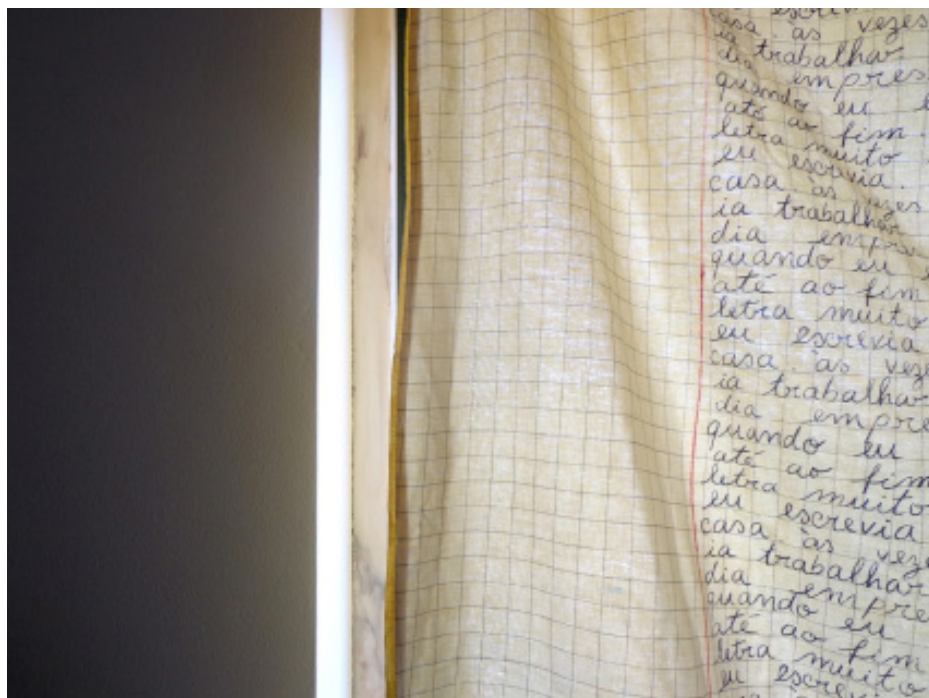 escrevi
casa. às vezes
ia trabalhar.
dia empres
quando eu
até ao fim.
letra muito
eu escrevia.
casa. às vezes
ia trabalhar
dia empre
quando eu
até ao fim
letra muito
eu escrevia
casa. às veze
ia trabalhar
dia empre
quando eu
até ao fim
letra muito
eu escrevia
casa. às veze
ia trabalhar
dia empre
quando eu
até ao fim
letra muito
eu escre